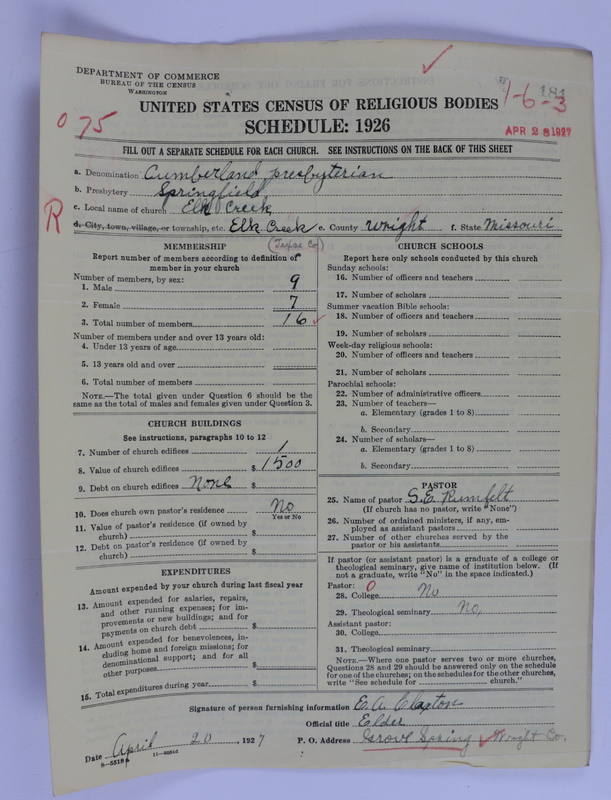 DEPARTMENT OF COMMERCE
BUREAU OF THE CENSUS
WASHINGTON
181
1-6-3
UNITED STATES CENSUS OF RELIGIOUS BODIES
075
SCHEDULE: 1926
APR 28 1927
FILL OUT A SEPARATE SCHEDULE FOR EACH CHURCH. SEE INSTRUCTIONS ON THE BACK OF THIS SHEET
a. Denomination Cumberland presbyterian
b. Presbytery Springfield
c. Local name of church Elk Creek
R
d. City, town, village, or township, etc. Elk Creek e. County Wright f. State Missouri
(Texas Co)
MEMBERSHIP
Report number of members according to definition of
member in your church
Number of members, by sex:
1. Male 9
2. Female 7
3. Total number of members 16
Number of members under and over 13 years old:
4. Under 13 years of age
5. 13 years old and over
6. Total number of members
NOTE.—The total given under Question 6 should be the
same as the total of males and females given under Question 3.
CHURCH BUILDINGS
See instructions, paragraphs 10 to 12
7. Number of church edifices 1
8. Value of church edifices $ 1500
9. Debt on church edifices None $
10. Does church own pastor's residence No
Yes or No
11. Value of pastor's residence (if owned by
church) $
12. Debt on pastor's residence (if owned by
church) $
EXPENDITURES
Amount expended by your church during last fiscal year
13. Amount expended for salaries, repairs,
and other running expenses; for im-
provements or new buildings; and for
payments on church debt $
14. Amount expended for benevolences, in-
cluding home and foreign missions; for
denominational support; and for all
other purposes $
15. Total expenditures during year $
CHURCH SCHOOLS
Report here only schools conducted by this church
Sunday schools:
16. Number of officers and teachers
17. Number of scholars
Summer vacation Bible schools:
18. Number of officers and teachers
19. Number of scholars
Week-day religious schools:
20. Number of officers and teachers
21. Number of scholars
Parochial schools:
22. Number of administrative officers
23. Number of teachers—
a. Elementary (grades 1 to 8)
b. Secondary
24. Number of scholars—
a. Elementary (grades 1 to 8)
b. Secondary
PASTOR
25. Name of pastor S.E. Rumfelt
(If church has no pastor, write "None")
26. Number of ordained ministers, if any, em-
ployed as assistant pastors
27. Number of other churches served by the
pastor or his assistants
If pastor (or assistant pastor) is a graduate of a college or
theological seminary, give name of institution below. (If
not a graduate, write "No" in the space indicated.)
Pastor: 0
28. College No
29. Theological seminary No,
Assistant pastor:
30. College
31. Theological seminary
NOTE.—Where one pastor serves two or more churches,
Questions 28 and 29 should be answered only on the schedule
for one of the churches; on the schedules for the other churches,
write "See schedule for church."
Signature of person furnishing information E.A. Claxton
Official title Elder
Date April 20, 1927 P. O. Address Grove Spring Wright Co.
8-5518a 11-9051d